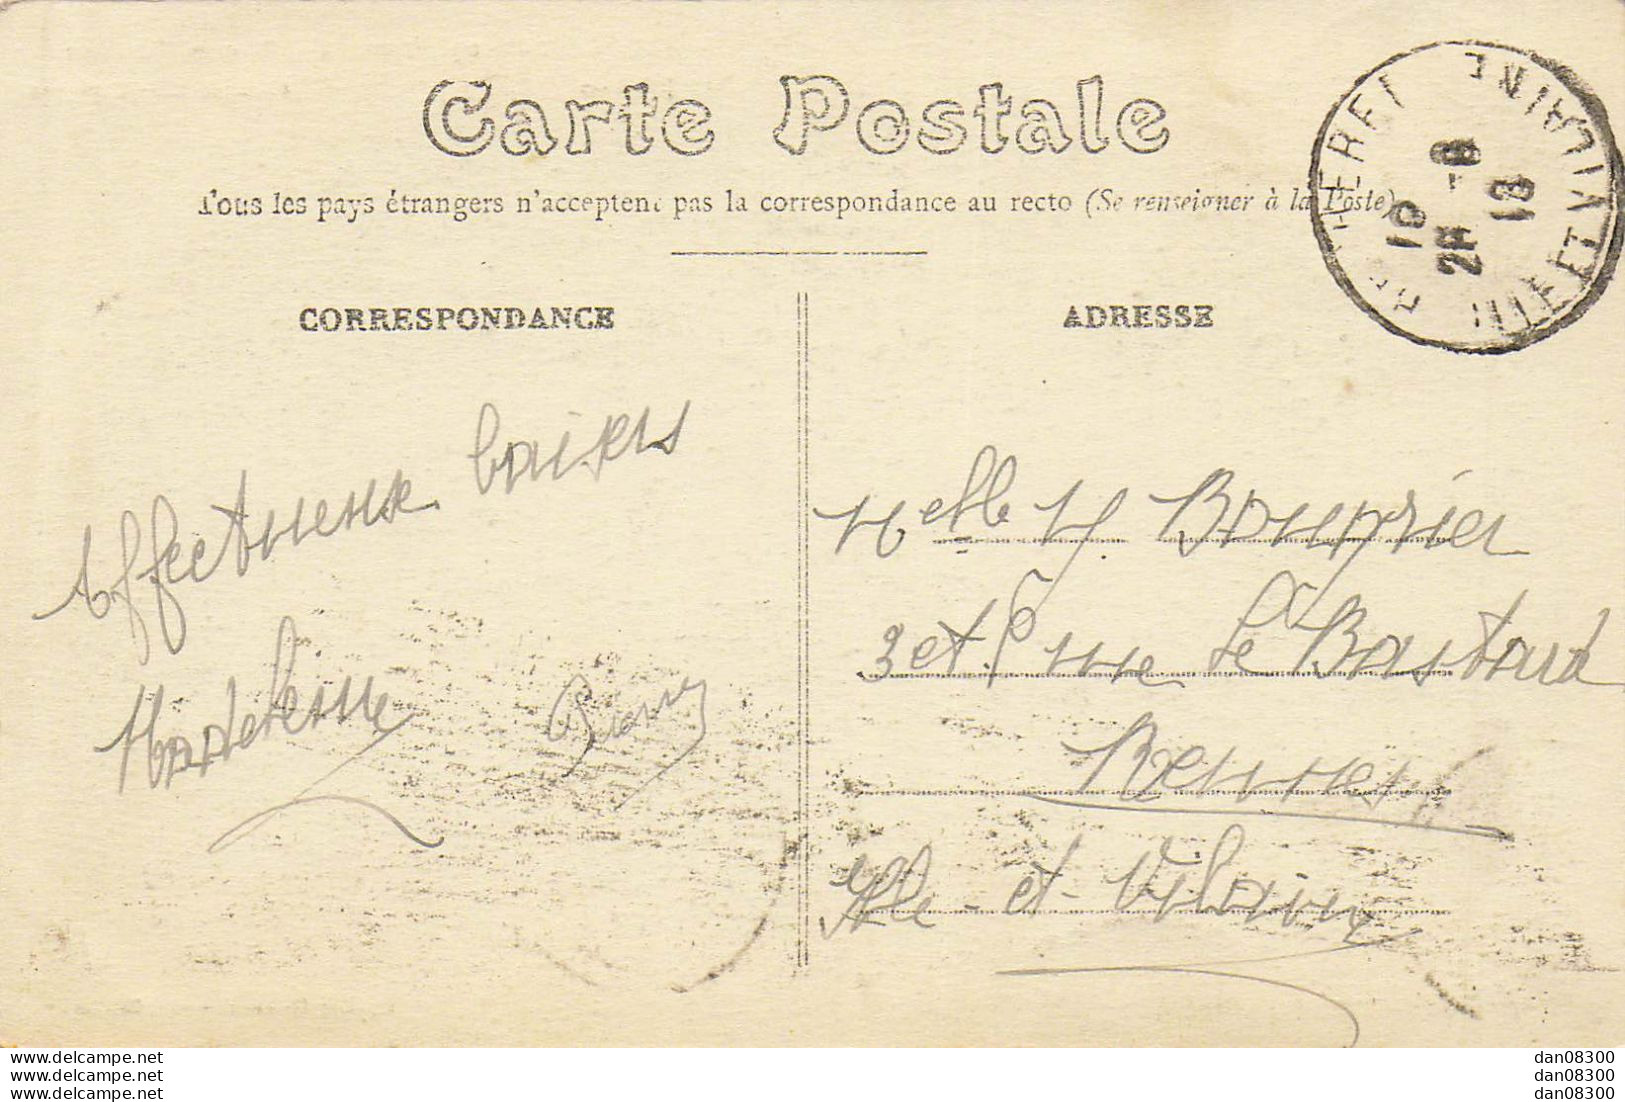 Carte Postale
Tous les pays étrangers n'acceptent pas la correspondance au recto (Se renseigner à la Poste)
CORRESPONDANCE
ADRESSE
ILLE ET VILAINE
18
-8
13
Affectueux baisers
Madeleine
Melle Y. Bourrier
3 et 5 rue Le Bastard
Rennes
Ille-et-Vilaine
www.delcampe.net
www.delcampe.net
www.delcampe.net
dan08300
dan08300
dan08300